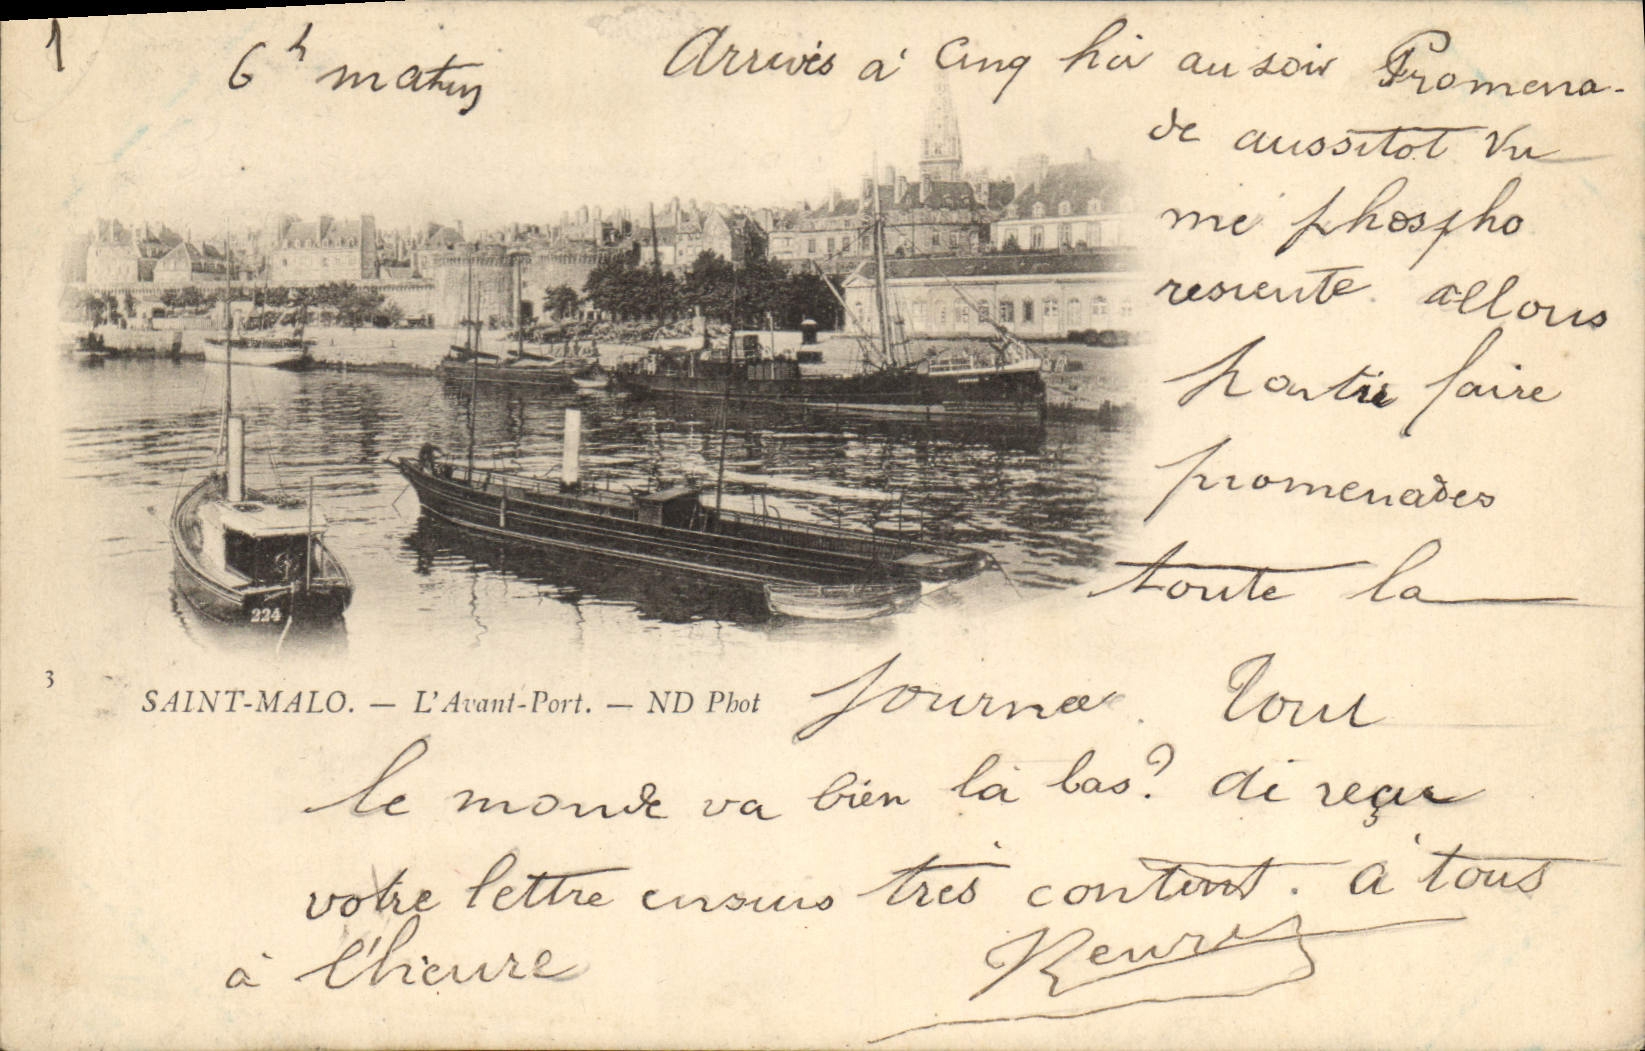 1
6h matin
Arrivés à Cinq h du soir Promena-
de aussitot Vu
me phospho
rescente. allons
partir faire
promenades
toute la
journée. Tout
3
SAINT-MALO. — L'Avant-Port. — ND Phot
le monde va bien là bas? ai reçu
votre lettre ensuis très content. à tous
à l'heure
Henri
224